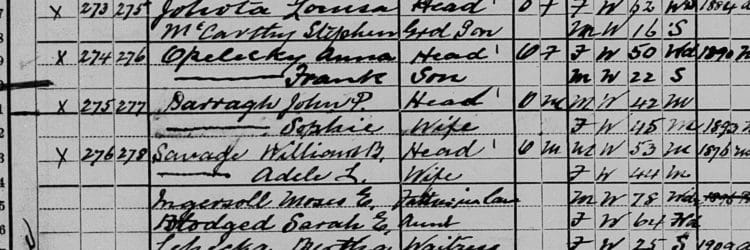 X 273 275 Louisa Head O F F W 92 Wd
McCarthy Stephen Grd Son M W 16 S
X 274 276 Opelecky Anna Head O F F W 50 Wd 1890
Frank Son M W 22 S
X 275 277 Darragh John P. Head O M M W 42 M
Sophie Wife F W 45 M 1893
X 276 278 Savage William B. Head O M M W 53 M 1875
Adele L. Wife F W 44 M
Ingersoll Moses E. M W 78 Wd
Blodged Sarah E. Aunt F W 64 Wd
Bertha Waitress F W 25 S